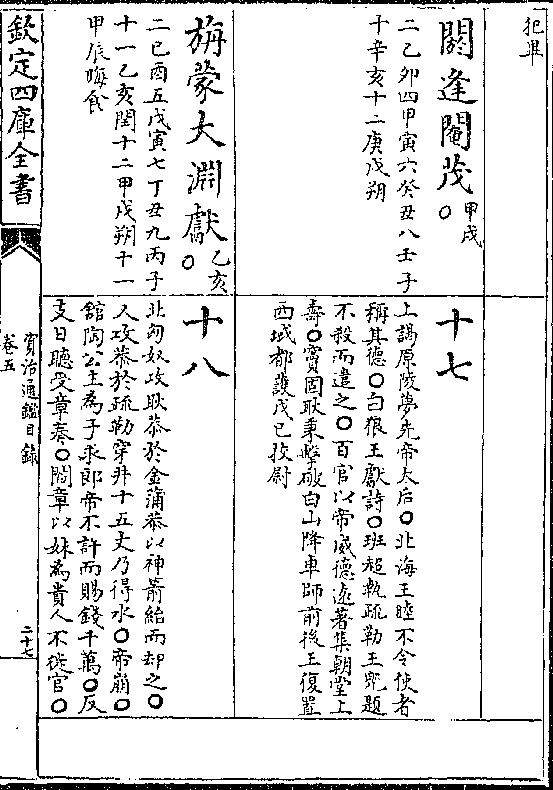 犯畢
閼逢閹茂甲戌○
二乙卯四甲寅六癸丑八壬子
十辛亥十二庚戌朔
十七
上謁原陵夢先帝太后○北海王睦不令使者
稱其德○白狼王獻詩○班超執疏勒王兜題
不殺而遣之○百官以帝威德遠著集朝堂上
壽○竇固耿秉擊破白山降車師前後王復置
西域都護戊己校尉
旃蒙大淵獻乙亥○
二己酉五戊寅七丁丑九丙子
十一乙亥閏十二甲戌朔十一
甲辰晦食
十八
北匈奴攻耿恭於金蒲恭以神箭紿而却之○
又攻恭於疏勒穿井十五丈乃得水○帝崩○
館陶公主為子求郎帝不許而賜錢千萬○反
支日聽受章奏○閻章以妹為貴人不從官○
欽定四庫全書
資治通鑑目錄
卷五
二十七